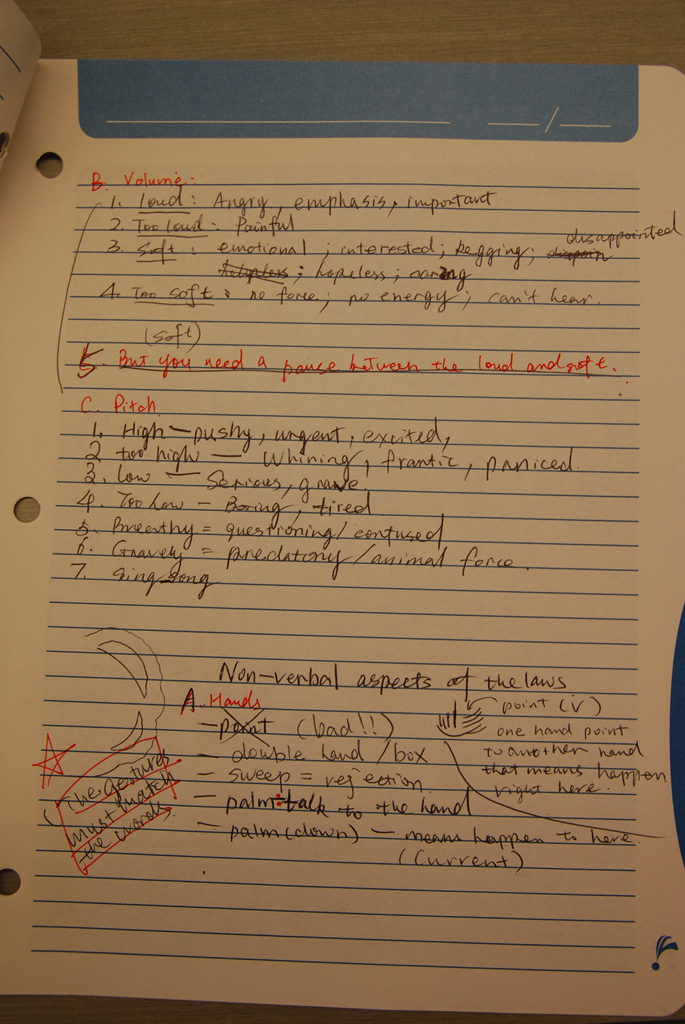 B. Volume:
1. loud: Angry, emphasis, important
2. Too loud: Painful
3. Soft: emotional; interested; begging; disappointed
helpless; hopeless; caring
4. Too soft: no force; no energy; can't hear.
(soft)
5. But you need a pause between the loud and soft.
C. Pitch
1. High — pushy, urgent, excited,
2 too high — Whining, frantic, paniced.
3. low — Serious, grave
4. Too Low — Boring, tired
5. Breathy = questioning / confused
6. Gravely = predatory / animal force.
7. sing song
Non-verbal aspects of the laws
A. Hands
— point (bad!!)
— double hand / box
— sweep = rejection
— palm: talk to the hand
— palm (down) — means happen to here.
(Current)
point (V)
one hand point
to another hand
that means happen
right here.
The gestures
must match
the words.